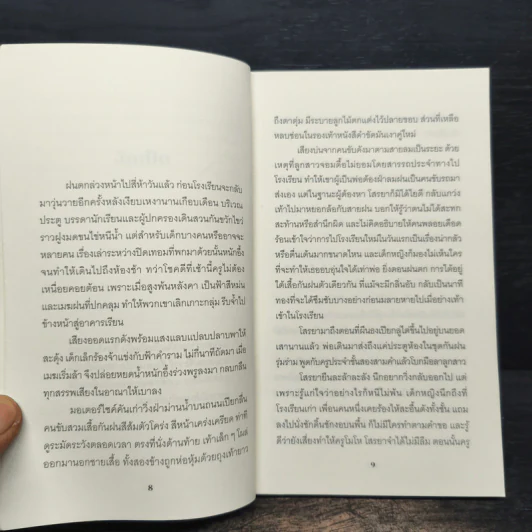 ฝนตกล่วงหน้าไปสี่ห้าวันแล้ว ก่อนโรงเรียนจะกลับ
มาวุ่นวายอีกครั้งหลังเงียบเหงานานเกือบเดือน บริเวณ
ประตู บรรดานักเรียนและผู้ปกครองเดินสวนกันขวักไขว่
ราวฝูงมดขนไข่หนีน้ำ แต่สำหรับเด็กบางคนหรืออาจจะ
หลายคน เรื่องเล่าระหว่างปิดเทอมที่พกมาด้วยนั้นหนักอึ้ง
จนทำให้เดินไปถึงห้องช้า ทว่าโชคดีที่เช้านี้ครูไม่ต้อง
เหนื่อยคอยต้อน เพราะเมื่อสูงพ้นหลังคา เป็นฟ้าสีหม่น
และเมฆฝนที่ปกคลุม ทำให้พวกเขาเลิกเถลไถล รีบจ้ำไป
ข้างหน้าสู่อาคารเรียน
เสียงออดแรกดังพร้อมแสงแลบแปลบปลาบพาให้
สะดุ้ง เด็กเล็กร้องจ้าแข่งกับฟ้าคำราม ไม่กี่นาทีถัดมา เมื่อ
เมฆเริ่มล้า จึงปล่อยหยดน้ำหนักอึ้งร่วงพรูลงมา กลบกลืน
ทุกสรรพเสียงในอาณาให้เบาลง
มอเตอร์ไซค์คันเก่าวิ่งฝ่าม่านน้ำบนถนนเปียกลื่น
คนขับสวมเสื้อกันฝนสีส้มตัวโคร่ง สีหน้าเคร่งเครียด ท่าที
ดูระมัดระวังตลอดเวลา ตรงที่นั่งด้านท้าย เท้าเล็ก ๆ โผล่
ออกมานอกชายเสื้อ ทั้งสองข้างถูกห่อหุ้มด้วยถุงเท้ายาว
8
ถึงตาตุ่ม มีระบายลูกไม้ตกแต่งไว้ปลายขอบ ส่วนที่เหลือ
หลบซ่อนในรองเท้าหนังสีดำขัดมันเงาคู่ใหม่
เสียงบ่นจากคนขับดังมาตามสายลมเป็นระยะ ด้วย
เหตุที่ลูกสาวจอมดื้อไม่ยอมโดยสารรถประจำทางไป
โรงเรียน ทำให้เขาผู้เป็นพ่อต้องฝ่าลมฝนเป็นคนขับรถมา
ส่งเอง แต่ในฐานะผู้ต้องหา โสรยาก็มิได้ไยดี กลับแกว่ง
เท้าไปมาหยอกล้อกับสายฝน บอกให้รู้ว่าตนไม่ได้สะทก
สะท้านหรือสำนึกผิด และไม่คิดอธิบายให้คนพลอยเดือด
ร้อนเข้าใจว่าการไปโรงเรียนใหม่ในวันแรกเป็นเรื่องน่ากลัว
หรือตื่นเต้นมากขนาดไหน และเด็กหญิงก็มองไม่เห็นใคร
ที่จะทำให้เธออบอุ่นใจได้เท่าพ่อ ยิ่งตอนฝนตก การได้อยู่
ใต้เสื้อกันฝนตัวเดียวกัน ที่แม้จะมีกลิ่นอับ กลับเป็นนาที
ทองที่จะได้ซึมซับบางอย่างก่อนมลายหายไปเมื่อย่างเท้า
เข้าในโรงเรียน
โสรยามาถึงตอนที่ผืนธงเปียกลู่ได้ขึ้นไปอยู่บนยอด
เสานานแล้ว พ่อเดินมาส่งถึงแค่ประตูห้องในชุดกันฝน
รุ่มร่าม พูดกับครูประจำชั้นสองสามคำแล้วโบกมือลาลูกสาว
โสรยายืนละล้าละลัง นึกอยากวิ่งกลับออกไป แต่
เพราะรู้แก่ใจว่าอย่างไรก็หนีไม่พ้น เด็กหญิงจึงนึกถึงที่
โรงเรียนเก่า เพื่อนคนหนึ่งเคยร้องไห้สะอึ้นดังทั้งชั้น ถามลง
ไปนั่งชักดิ้นชักงอบนพื้น ก็ไม่มีใครทำตามคำขอ และรู้
ดีว่ายังเสียงทำให้ครูโมโห โสรยาจำได้ไม่มีลืม ตอนนั้นครู
9